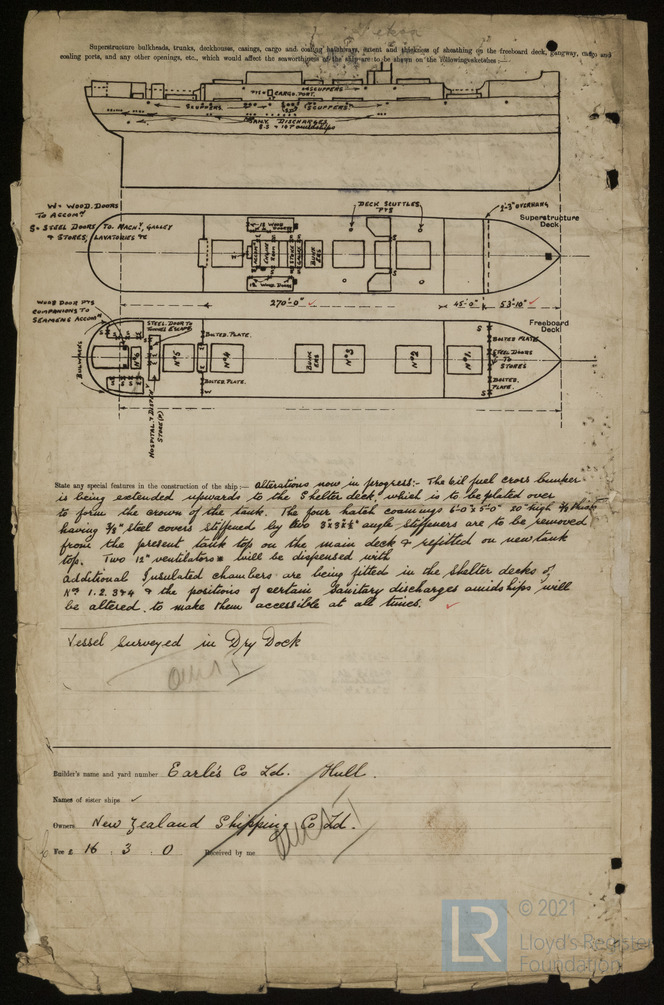 Superstructure bulkheads, trunks, deckhouses, casings, cargo and coaling hatchways, extent and thickness of sheathing on the freeboard deck, gangway, cargo and
coaling ports, and any other openings, etc., which would affect the seaworthiness of the ship are to be shown on the following sketches :—
SCUPPERS
CARGO PORT.
SCUPPERS
SCUPPERS.
SANY DISCHARGES
W = WOOD. DOORS
TO ACCOMN
S = STEEL DOORS TO. MACHY, GALLEY
& STORES, LAVATORIES &c
DECK SCUTTLES
P & S
1'-3" OVERHANG
Superstructure
Deck
WOOD DOORS
BUNK
ERS
WOOD DOORS
270'-0" ✓
45'-0"
53'-10" ✓
WOOD DOOR P&S
COMPANIONS TO
SEAMENS ACCOMN
STEEL DOOR TO
TUNNEL ESCAPE
BOLTED. PLATE.
Freeboard
Deck
BULWARKS
Nº6
Nº5
Nº4
BUNK
ERS
Nº3
Nº2
Nº1
BOLTED PLATE
STEEL DOORS
TO
STORES
BOLTED.
PLATE.
BOLTED PLATE.
HOSPITAL &
STORE (P)
State any special features in the construction of the ship :— Alterations now in progress:- The oil fuel cross bunker
is being extended upwards to the Shelter deck, which is to be plated over
to form the crown of the tank. The four hatch coamings 6'-0" x 5'-0" 20" high 3/8 thick
having 3/8" steel covers stiffened by two 3x3x3/8 angle stiffeners are to be removed
from the present tank top on the main deck & refitted on new tank
top. Two 12" ventilators will be dispensed with
Additional Insulated chambers are being fitted in the shelter decks of
Nos 1. 2. 3 & 4 & the positions of certain Sanitary discharges amidships will
be altered to make them accessible at all times. ✓
Vessel surveyed in Dry Dock
Builder's name and yard number Earle's Co Ld. Hull.
Names of sister ships ✓
Owners New Zealand Shipping Co Ld.
Fee £ 16 : 3 : 0 Received by me
LR
© 2021
Lloyd's Register
Foundation